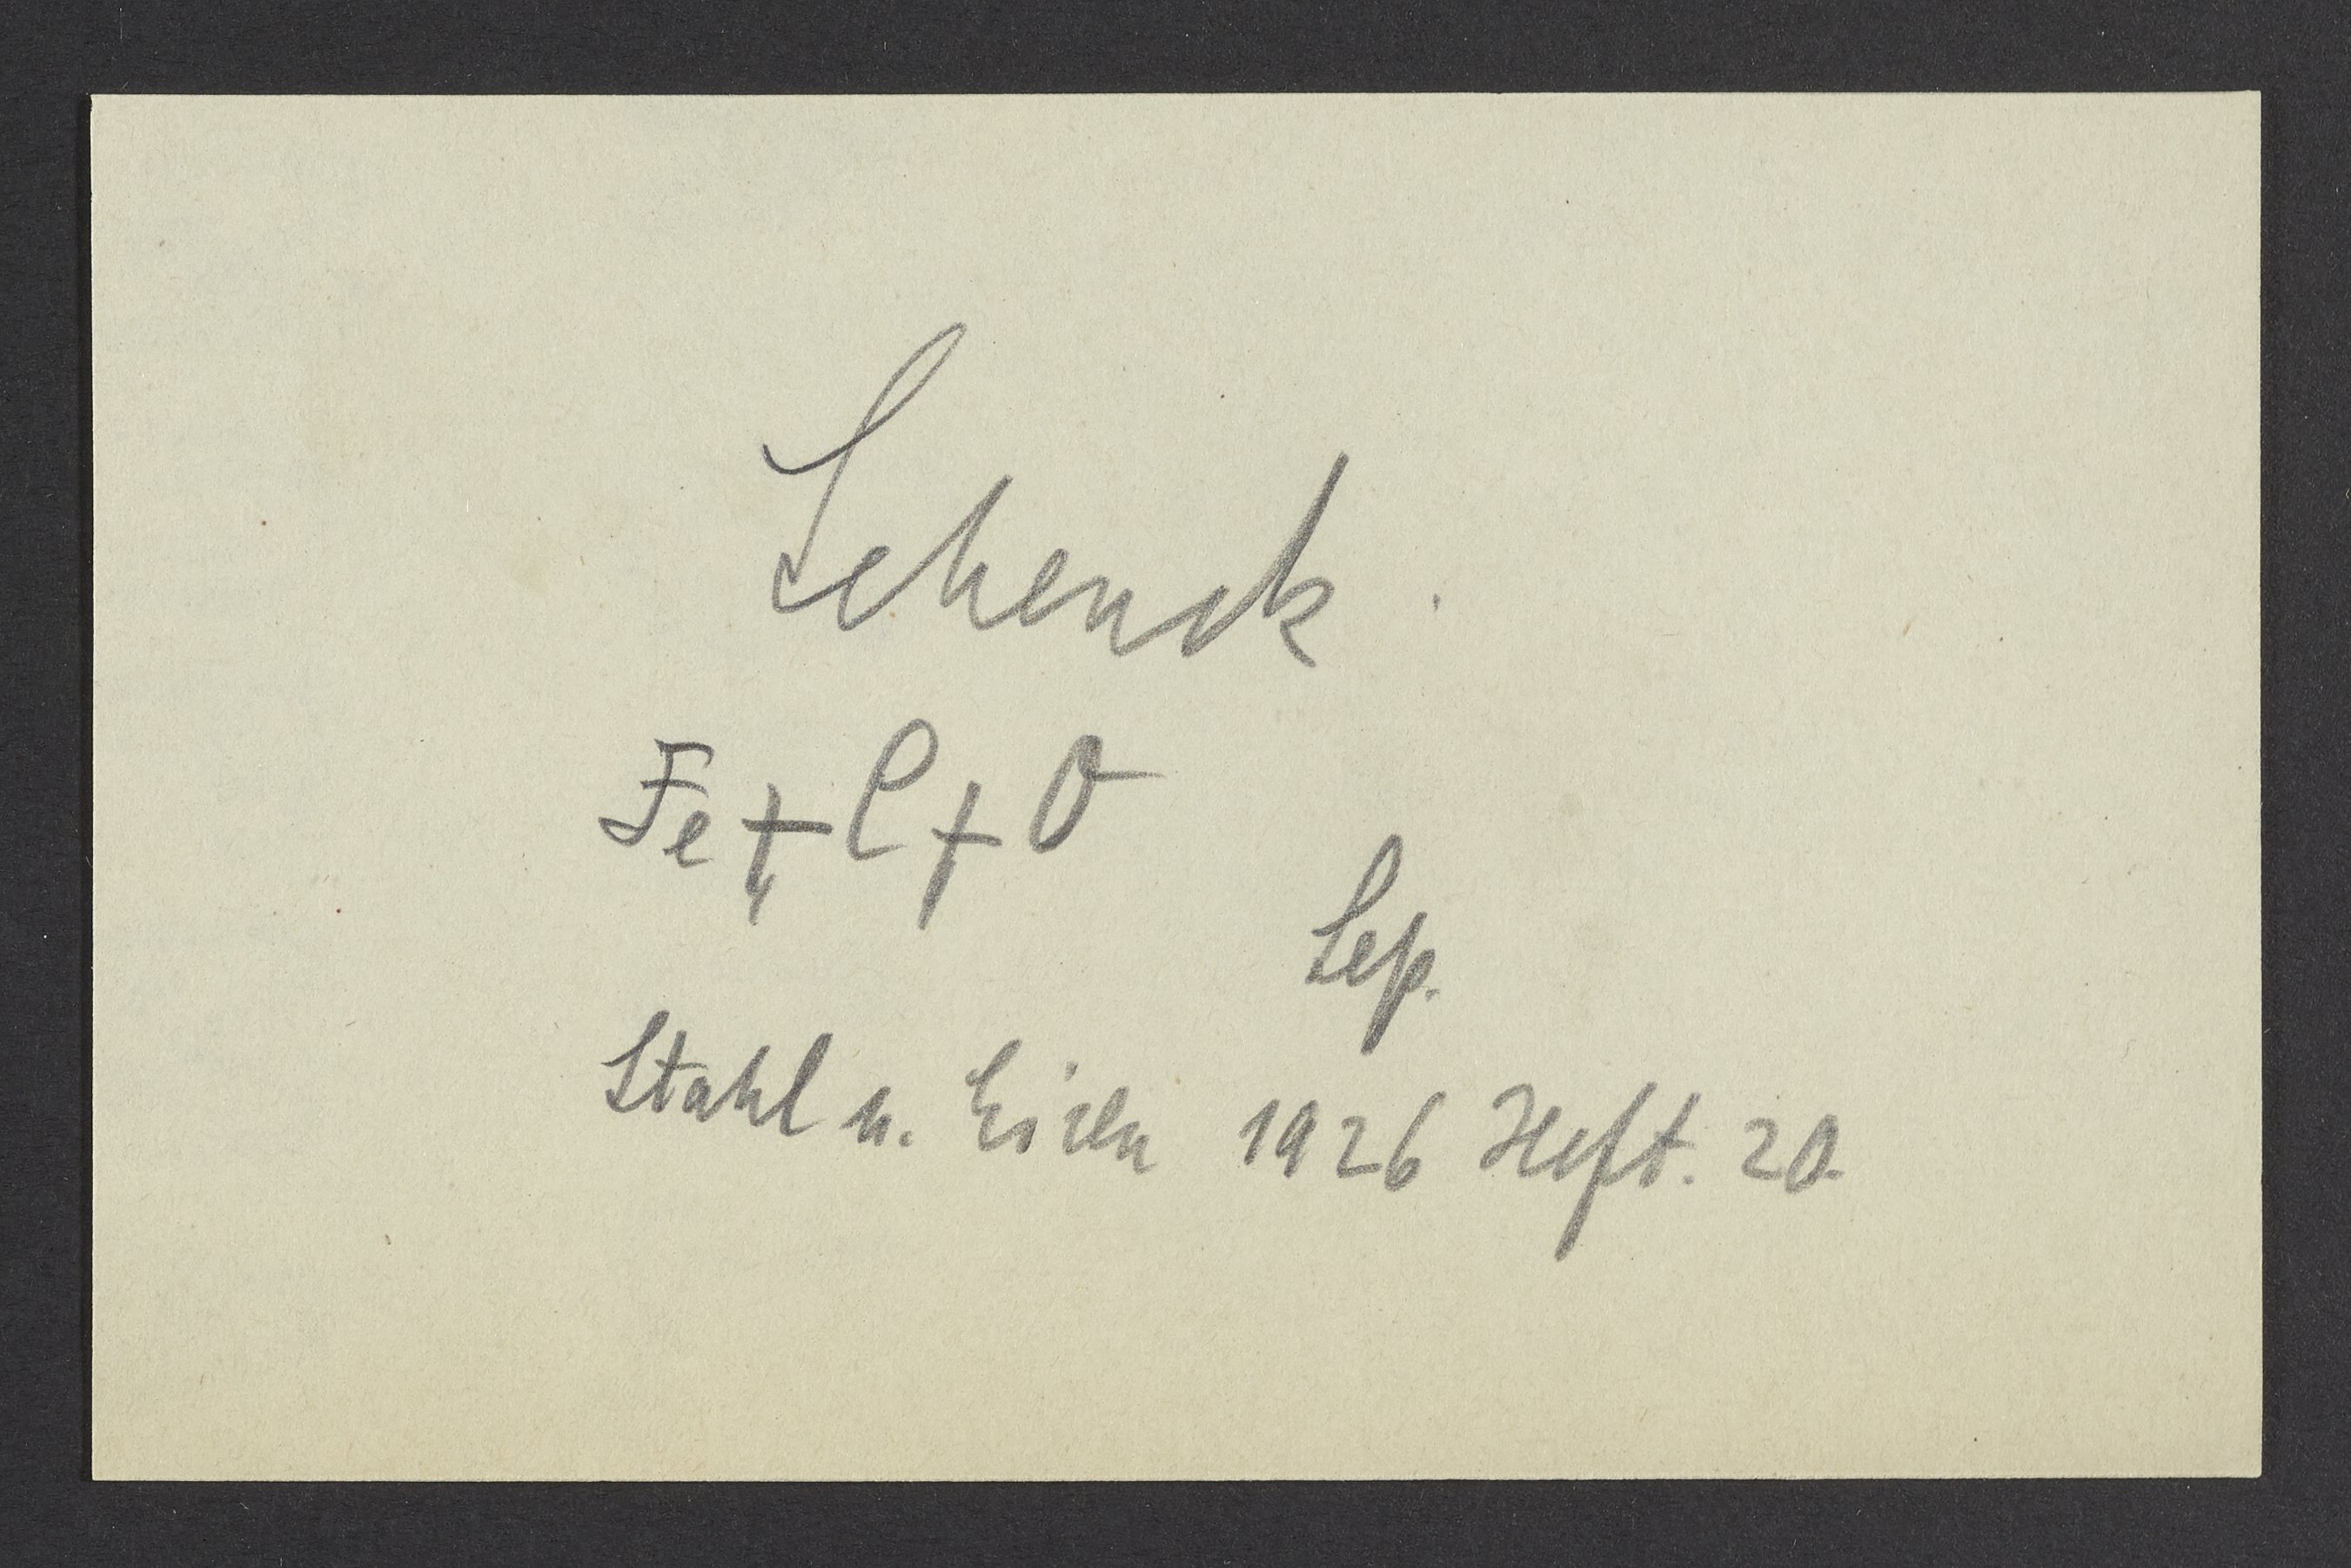 Schenck.
Fe + C + O
Sep.
Stahl u. Eisen 1926 Heft. 20.